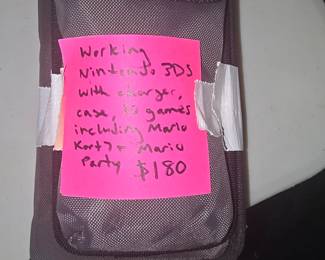 Working
Nintendo 3DS
with charger,
case, 10 games
including Mario
Kart 7 + Mario
Party $180